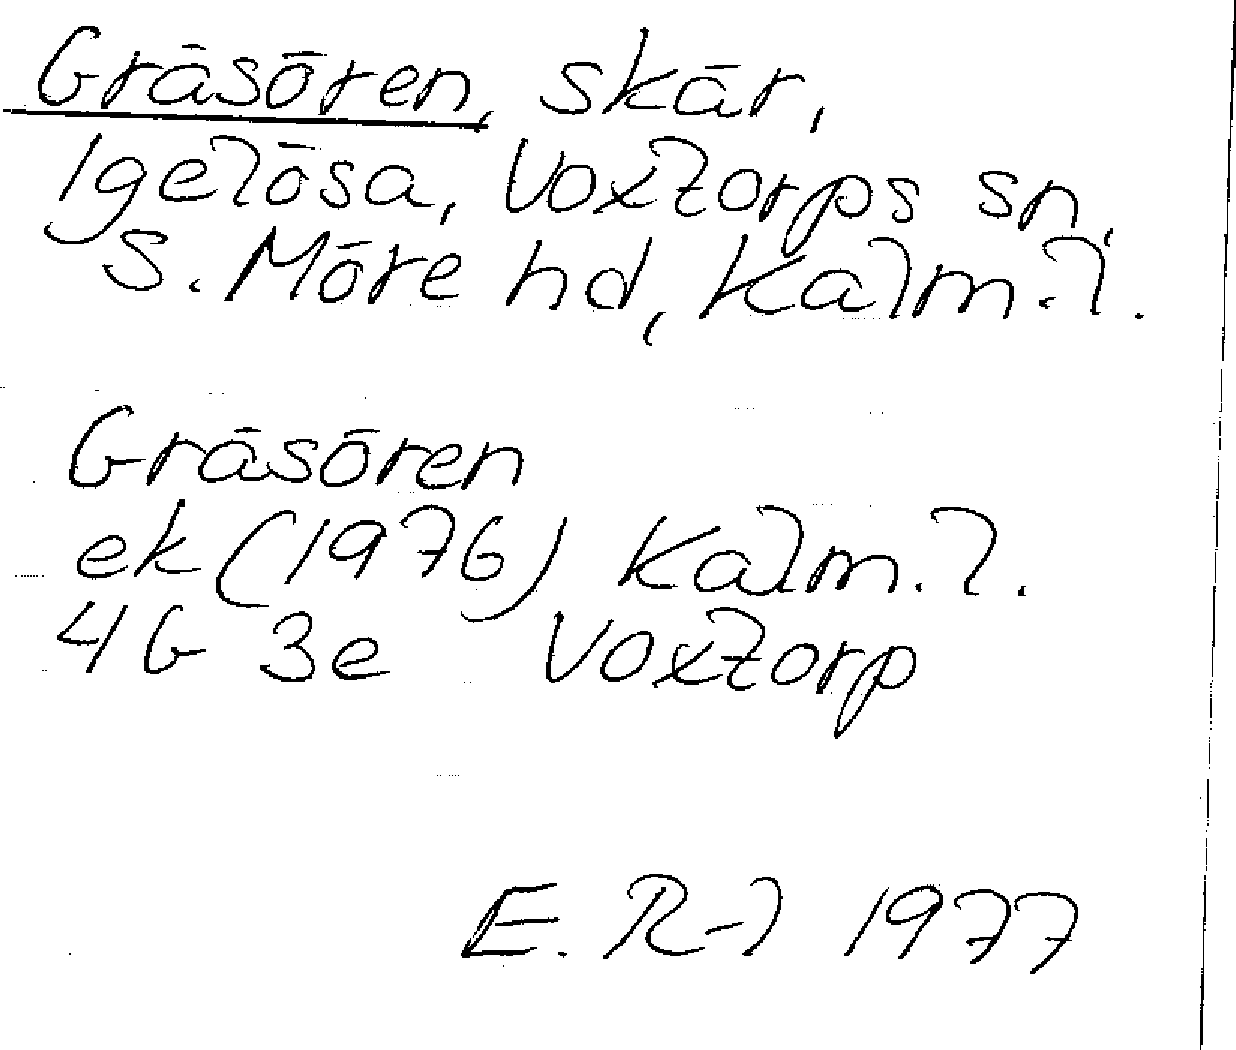 Gräsören, skär,
Igelösa, Voxtorps sn,
S. Möre hd, Kalm. l.
Gräsören
ek (1976) Kalm. l.
4G 3e Voxtorp
E. R-l 1977